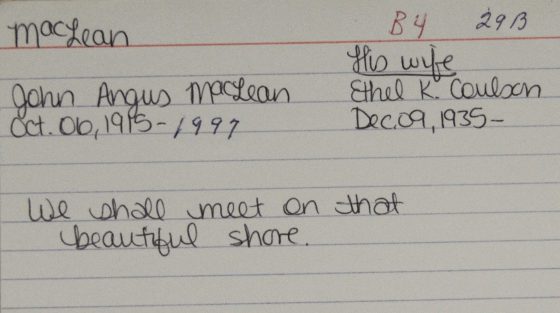 MacLean B4 29B
His wife
John Angus MacLean Ethel K. Coulson
Oct. 06, 1915-1997 Dec. 09, 1935-
We shall meet on that
beautiful shore.